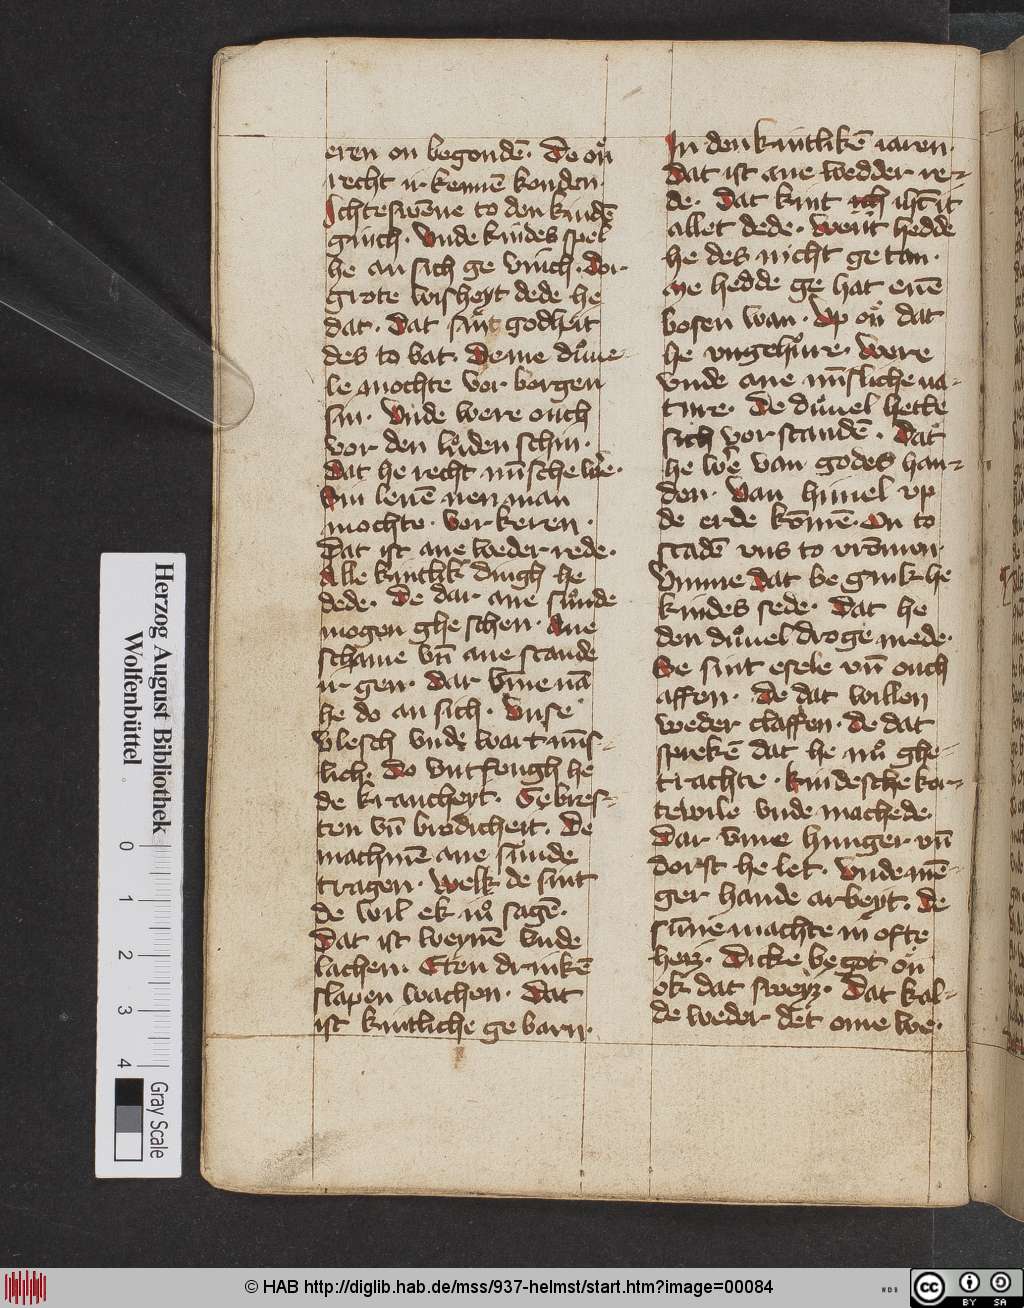 eren on begondē. Do oů
recht ir kennē konden.
Ichteswēne to den kindē
ginch. Vnde kindes spel
he an sich ge vinch. dor
grote wisheyt dede he
dat. Dat sint godheit
des to bat. Deme důue-
le mochte vor borgen
sin. Vnde were ouch
vor den lůden schin.
Dat he recht mīsche wē.
Sin leuē nen man
mochte. vor keren.
Dat ist ane weder rede.
Alle kintlik dingh he
dede. De dar ane sůnde
mogen ghe schen. Ane
schame vn̄ ane scande
ir gen. Dar vm̄e nā
he do an sich. Vnse
vlesch vnde wart mīs-
lich. Do vntfengh he
de krancheyt. Gebres-
ten vn̄ brodicheit. De
machmē ane sůnde
tragen. Welk de sint
de wil ek iů sagē.
Dat ist weynē vnde
lachen. Eten drinkē
slapen wachen. Dat
ist kintliche ge barn.
In den kintlikē iaren.
Dat ist ane wedder re-
de. Dat kint ich ihc̄ it
allet dede. went hedde
he des nicht ge tan.
Me hedde ge hat enē
bosen wan. Vp oů dat
he vngehůre. Were
vnde ane mīsliche na-
ture. De důuel hette
sich vor standē. Dat
he wē van godes han-
den. Van himel vp
de erde kōmē. On to
scadē vns to vrōmen.
Vmme dat be gink he
kindes sede. Dat he
den důuel droge mede.
De sint esele vn̄ ouch
affen. De dat willen
weder claffen. de dat
sprekē dat he nů ghe-
trachte. kindesche kor-
tewile vnde machede.
Dar vm̄e hunger vn̄
dorst he let. Vnde mē-
ger hande arbeyt. De
sunne machte in ofte
heiz. Dicke be got oů
ok dat sweyz. Dat kal-
de weder det ome we.
Herzog August Bibliothek
Wolfenbüttel
0 1 2 3 4
Gray Scale
© HAB http://diglib.hab.de/mss/937-helmst/start.htm?image=00084
WDB
cc BY SA